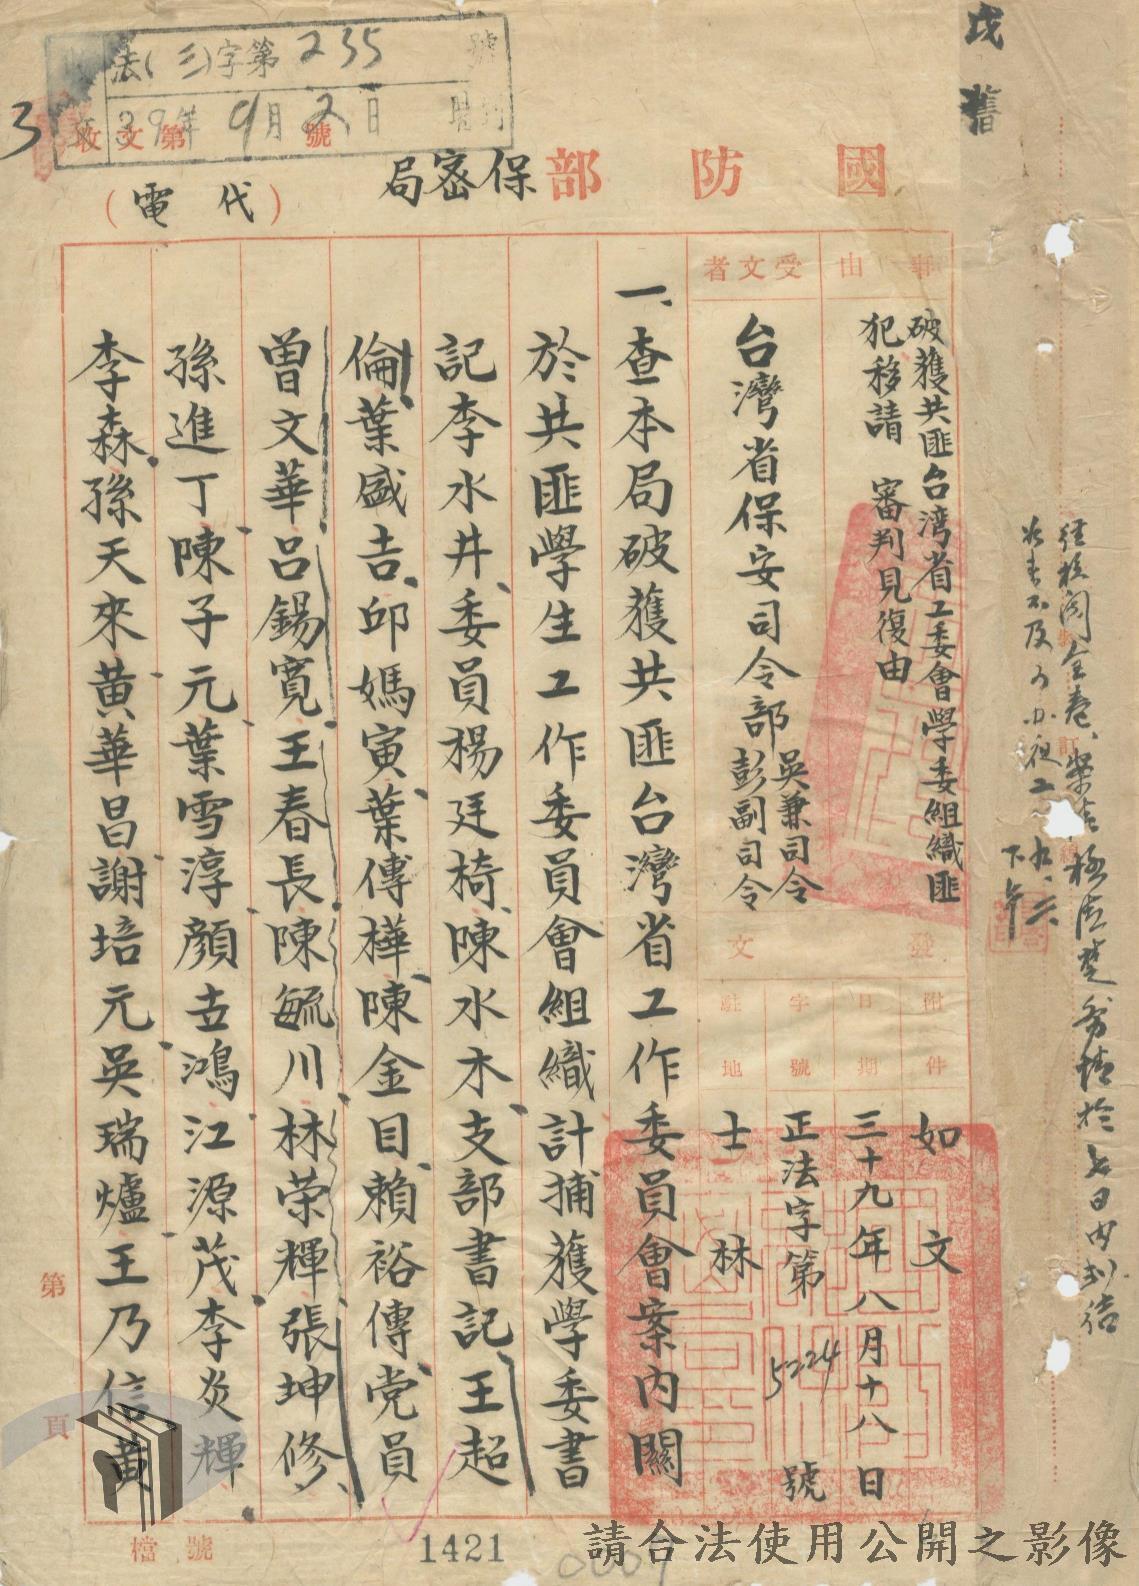 法(三)字第235號
39年9月2日
收文第 號
3
國防部保密局
(代電)
事由
破獲共匪台湾省工委會學委組織匪
犯移請 審判見復由
受文者
台灣省保安司令部
吳兼司令
彭副司令
發文
附件
如文
日期
三十九年八月十八日
字號
正法字第5224號
駐地
士林
一、查本局破獲共匪台灣省工作委員會案內關
於共匪學生工作委員會組織計捕獲學委書
記李水井、委員楊廷椅、陳水木、支部書記王超
倫、葉盛吉、邱媽寅、葉傳樺、陳金目、賴裕傳、党員
曾文華、呂錫寬、王春長、陳毓川、林荣輝、張坤修、
孫進丁、陳子元、葉雪淳、顏立鴻、江源茂、李炎輝
李森、孫天來、黄華昌、謝培元、吳瑞爐、王乃信、黄
第頁
檔號
1421
請合法使用公開之影像